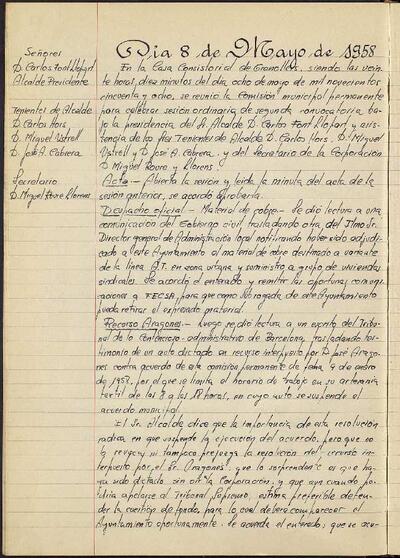 Señores
D. Carlos Font Llopart
Alcalde Presidente
Tenientes de Alcalde
D. Carlos Hors
D. Miguel Ustrell
D. José A. Cabrera
Secretario
D. Miguel Roure Llorens
Día 8 de Mayo de 1958
En la Casa Consistorial de Granollers, siendo las vein-
te horas, diez minutos del día, ocho de mayo de mil novecientos
cincuenta y ocho, se reunió la Comisión municipal permanente
para celebrar sesión ordinaria de segunda convocatoria, ba-
jo la presidencia del Sr. Alcalde D. Carlos Font Llopart y asis-
tencia de los tres Tenientes de Alcalde D. Carlos Hors, D. Miguel
Ustrell y D. José A. Cabrera, y del Secretario de la Corporación
D. Miguel Roure y Llorens.
Acta.- Abierta la sesión y leída la minuta del acta de la
sesión anterior, se acordó aprobarla.
Despacho oficial.- Material de cobre.- Se dió lectura a una
comunicación del Gobierno civil, trasladando otra del Ilmo. Sr.
Director general de Administración local notificando haber sido adjudi-
cado a este Ayuntamiento el material de cobre destinado a variante
de la línea A.T. en zona urbana y suministro a grupo de viviendas
sindicales. Se acordó el enterado y remitir las oportunas comuni-
caciones a FECSA, para que como subrogada de este Ayuntamiento
pueda retirar el expresado material.
Recurso Aragones.- Luego se dió lectura a un escrito del Tribu-
nal de lo Contencioso-administrativo de Barcelona, trasladando tes-
timonio de un auto dictado en recurso interpuesto por D. José Arago-
nes contra acuerdo de esta comisión permanente de fecha 9 de enero
de 1958, por el que se limita el horario de trabajo en su artesanía
textil de las 8 a las 18 horas, en cuyo auto se suspende el
acuerdo municipal.
El Sr. Alcalde dice que la importancia de esta resolución
radica en que suspende la ejecución del acuerdo, pero que no
lo revoca, ni tampoco prejuzga la resolución del recurso in-
terpuesto por el Sr. Aragones; que lo sorprendente es que ha-
ya sido dictado sin oir a la Corporación, y que aun cuando po-
dría apelarse al Tribunal Supremo, estima preferible defen-
der la cuestión de fondo, para lo cual deberá comparecer el
Ayuntamiento oportunamente. Se acuerda el enterado, que se acu-